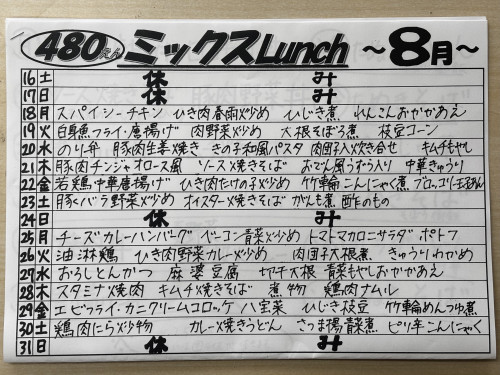 480えん ミックスLunch 〜8月〜
16 土 休 み
17 日 休 み
18 月 スパイシーチキン ひき肉春雨炒め ひじき煮 れんこんおかかあえ
19 火 白身魚フライ・唐揚げ 肉野菜炒め 大根そぼろ煮 枝豆コーン
20 水 のり弁 豚肉生姜焼き きの子和風パスタ 肉団子入炊き合せ キムチもやし
21 木 豚肉チンジャオロース風 ソース焼きそば おでん風うずら入り 中華きゅうり
22 金 若鶏中華唐揚げ ひき肉たけの子炒め 竹輪こんにゃく煮 ブロッコリー玉子あん
23 土 豚バラ野菜炒め オイスター焼きそば がんも煮 酢のもの
24 日 休 み
25 月 チーズカレーハンバーグ ベーコン青菜炒め トマトマカロニサラダ ポトフ
26 火 油淋鶏 ひき肉野菜カレー炒め 肉団子大根煮 きゅうりわかめ
27 水 おろしとんかつ 麻婆豆腐 切干大根 青菜もやしおかかあえ
28 木 スタミナ焼肉 キムチ焼きそば 煮物 鶏肉ナムル
29 金 エビフライ・カニクリームコロッケ 八宝菜 ひじき枝豆 竹輪めんつゆ煮
30 土 鶏肉にら炒物 カレー焼きうどん さつま揚青菜煮 ピリ辛こんにゃく
31 日 休 み